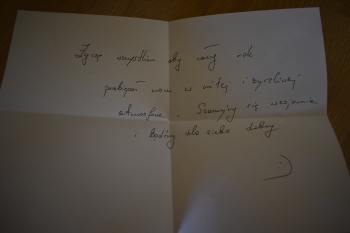 Życzę wszystkim aby cały rok
przebiegał nam w miłej i życzliwej
atmosferze. Szanujmy się wzajemnie
i bądźmy dla siebie dobrzy
:)